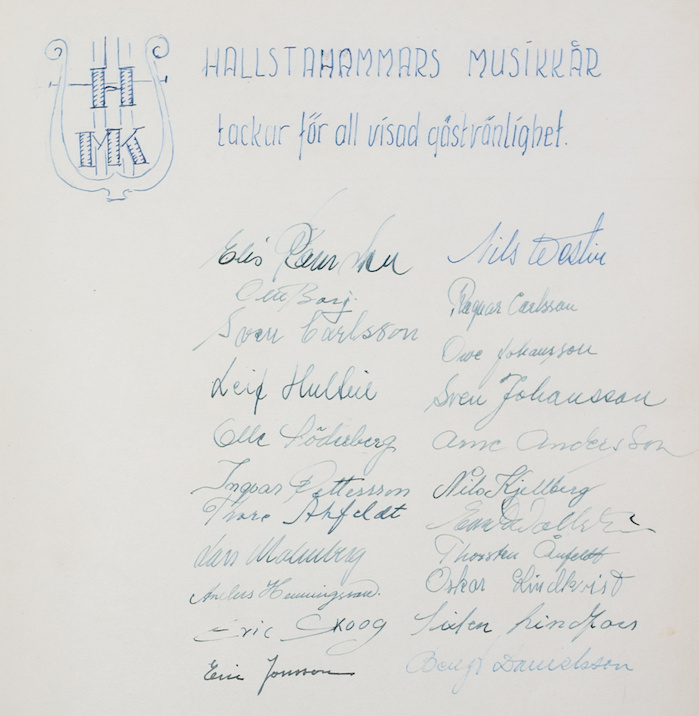 H
MK
HALLSTAHAMMARS MUSIKKÅR
tackar för all visad gästvänlighet.
Elis
Nils Westin
Borg
Ragnar Carlsson
Sven Carlsson
Owe Johansson
Leif
Sven Johansson
Olle Söderberg
Arne Andersson
Ingvar Pettersson
Nils Kjellberg
Thore Ahfeldt
Lars Malmberg
Thorsten
Henningsson
Oskar Lindkvist
Eric Skoog
Lindfors
Eric Jonsson
Bengt Danielsson